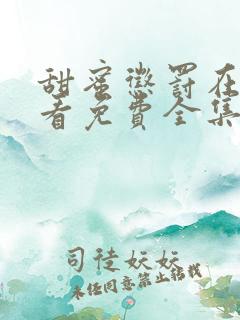 甜蜜惩罚在
看免费全集
司徒妖妖
未经同意禁止转载